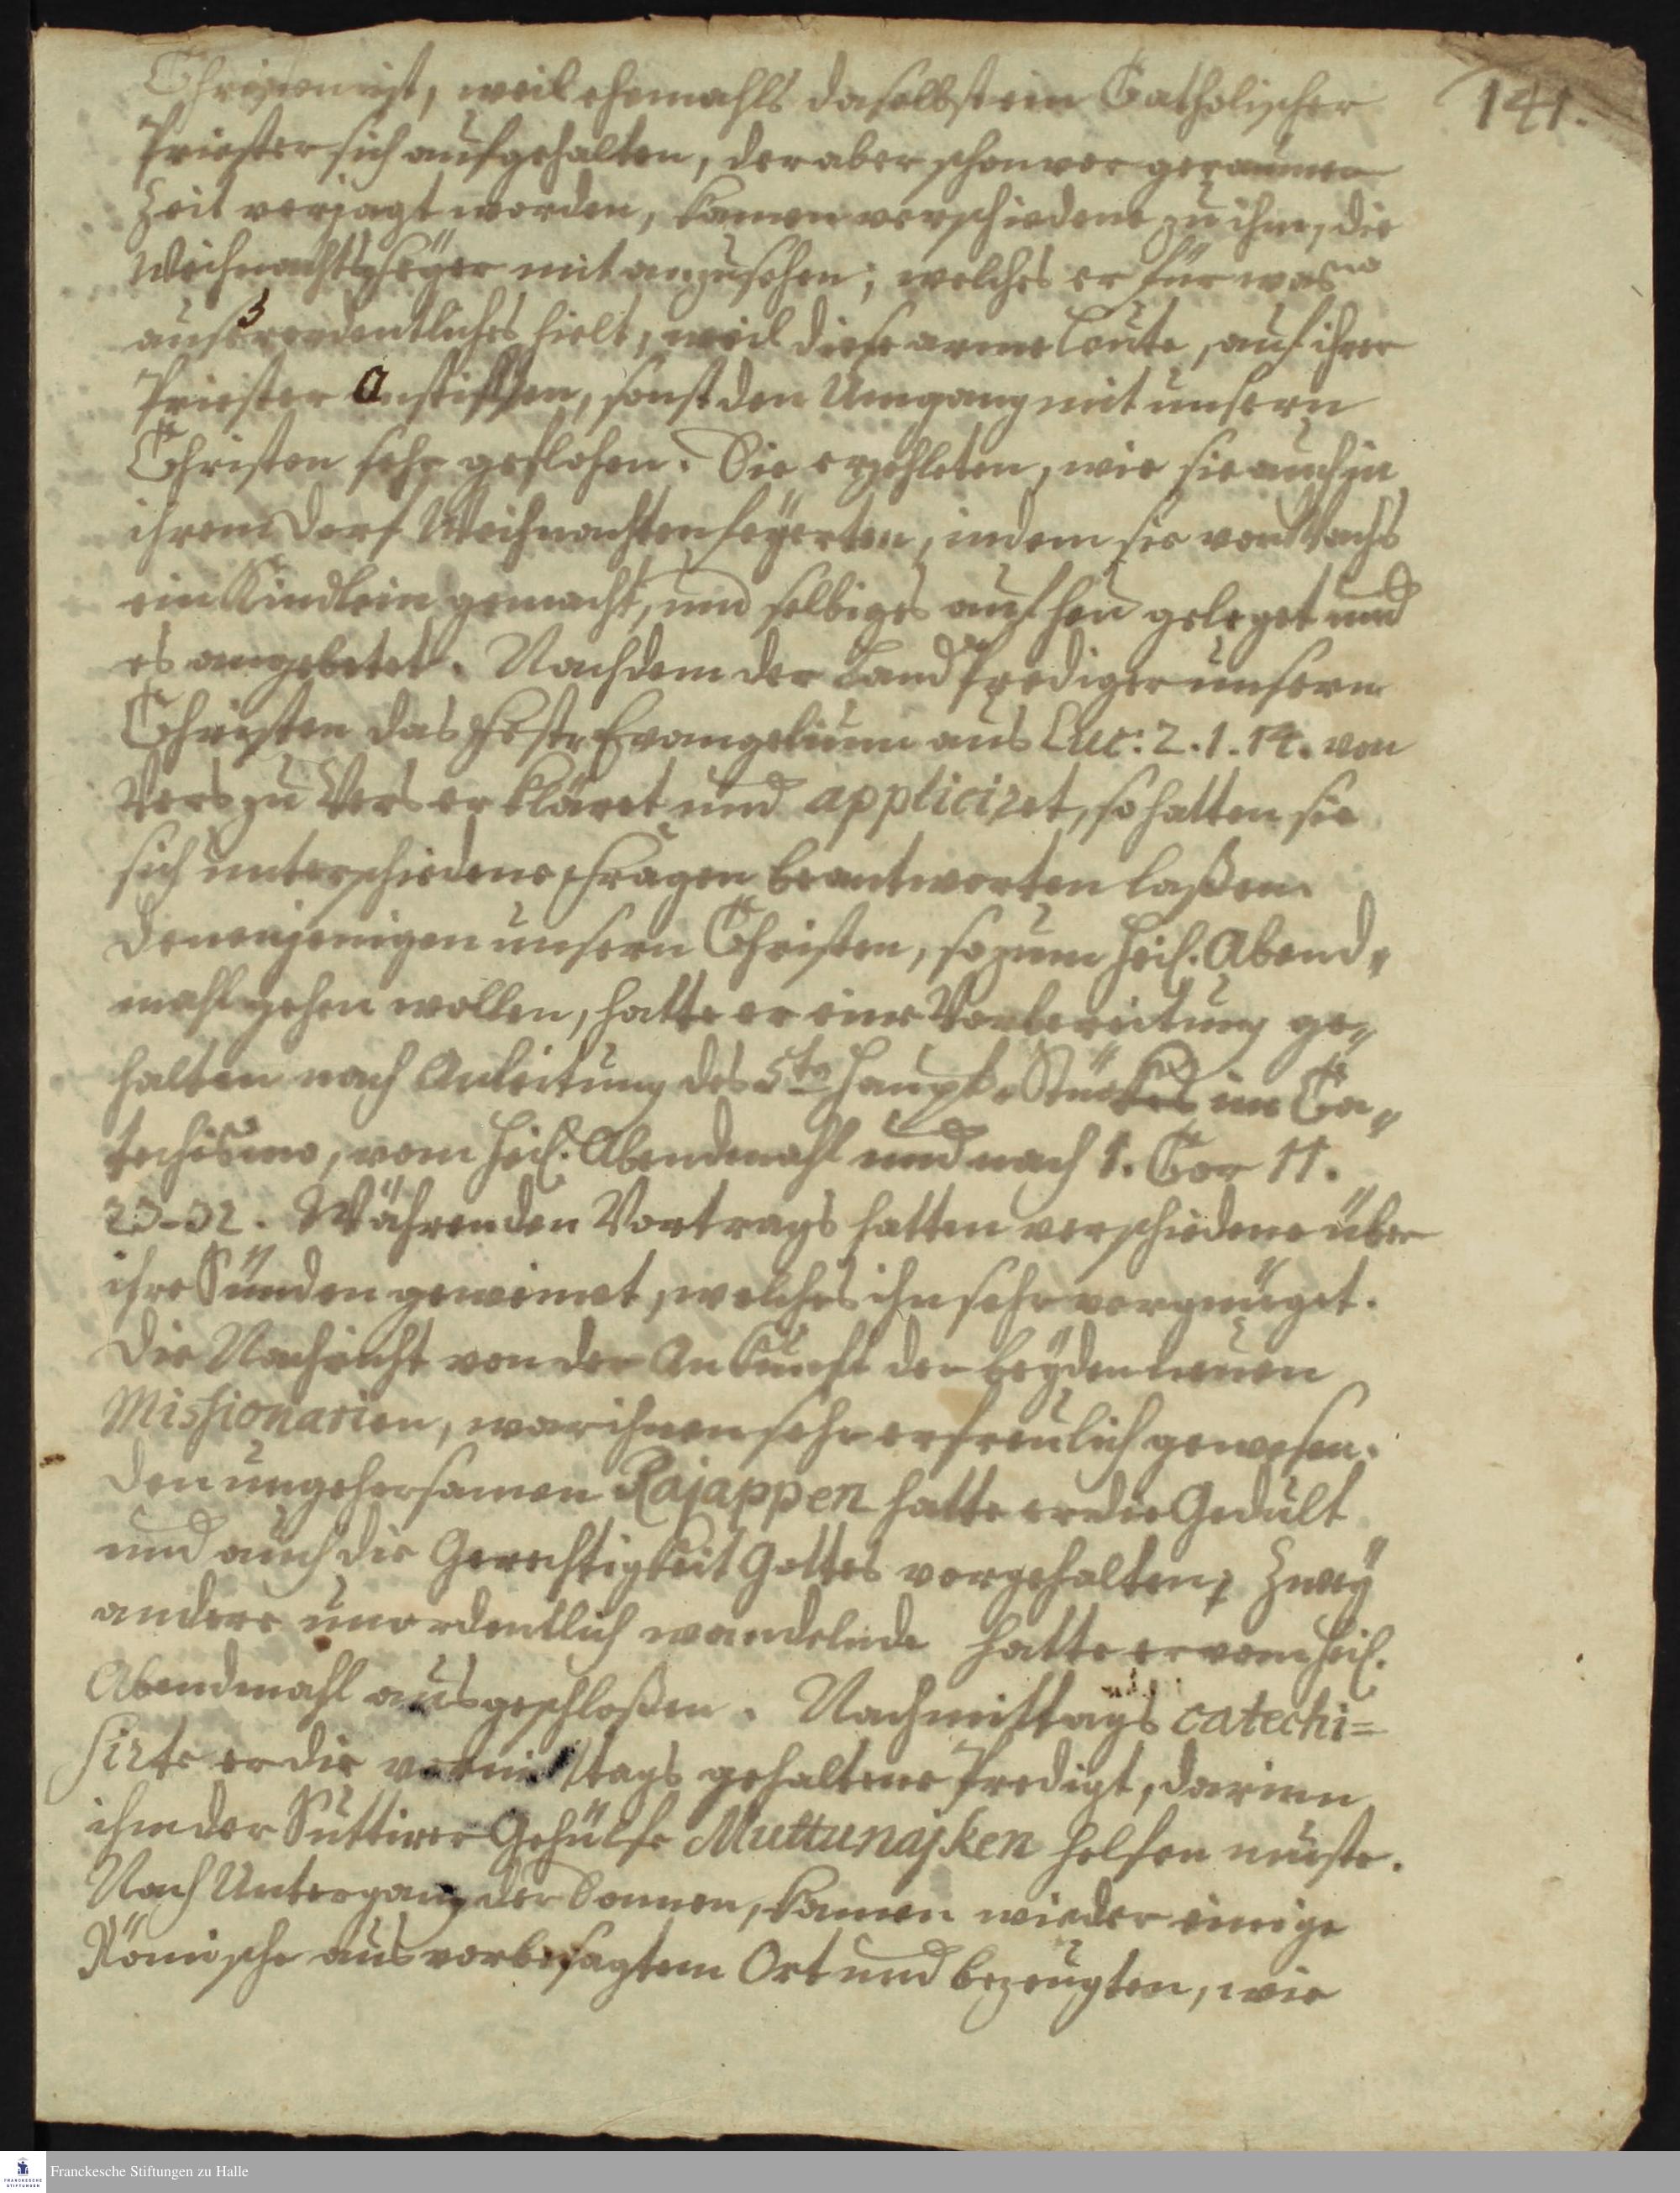 141.
Christen ist, weil ehemahls daselbst ein Catholischer
Priester sich aufgehalten, der aber schon vor geraumer
Zeit verjagt worden, kamen verschiedene zu ihm, die
Weihnachtsfeyer mit anzusehen; welches er für was
außerordentliches hielt, weil diese arme Leute, auf ihrer
Priester Anstifften, sonst den Umgang mit unsern
Christen sehr geflohen. Sie erzehleten, wie sie auch in
ihrem Dorf Weihnachten feyerten, indem sie von Wachs
ein Kindlein gemacht, und selbiges auf heu geleget und
es angebetet. Nachdem der Land Prediger unsern
Christen das Fest-Evangelium aus Luc: 2. 1. 14. von
Vers zu Vers erkläret und appliciret, so hatten sie
sich unterschiedene Fragen beantworten laßen.
Denenjenigen unsern Christen, so zum heil. Abend„
mahl gehen wollen, hatte er eine Vorbereitung ge„
halten nach Anleitung des 5ten Haupt-Stückes im Ca„
techismo, vom heil. Abendmahl und nach 1. Cor 11.
23-32. Währenden Vortrags hatten verschiedene über
ihre Sünden geweinet, welches ihn sehr vergnüget.
Die Nachricht von der Ankunft der beyden neuen
Missionarien, war ihnen sehr erfreulich gewesen.
Den ungehorsamen Rajappen hatte er die Gedult
und auch die Gerechtigkeit Gottes vorgehalten; Zwey
andere unordentlich wandelnde hatte er vom heil.
Abendmahl ausgeschloßen. Nachmittags catechi=
sirte er die vormittags gehaltene Predigt, darinn
ihm der Suttirer Gehülfe Muttunajken helfen muste.
Nach Untergang der Sonnen, kamen wieder einige
Römische aus vorbesagtem Ort und bezeugten, wie
Franckesche Stiftungen zu Halle
FRANCKESCHE
STIFTUNGEN